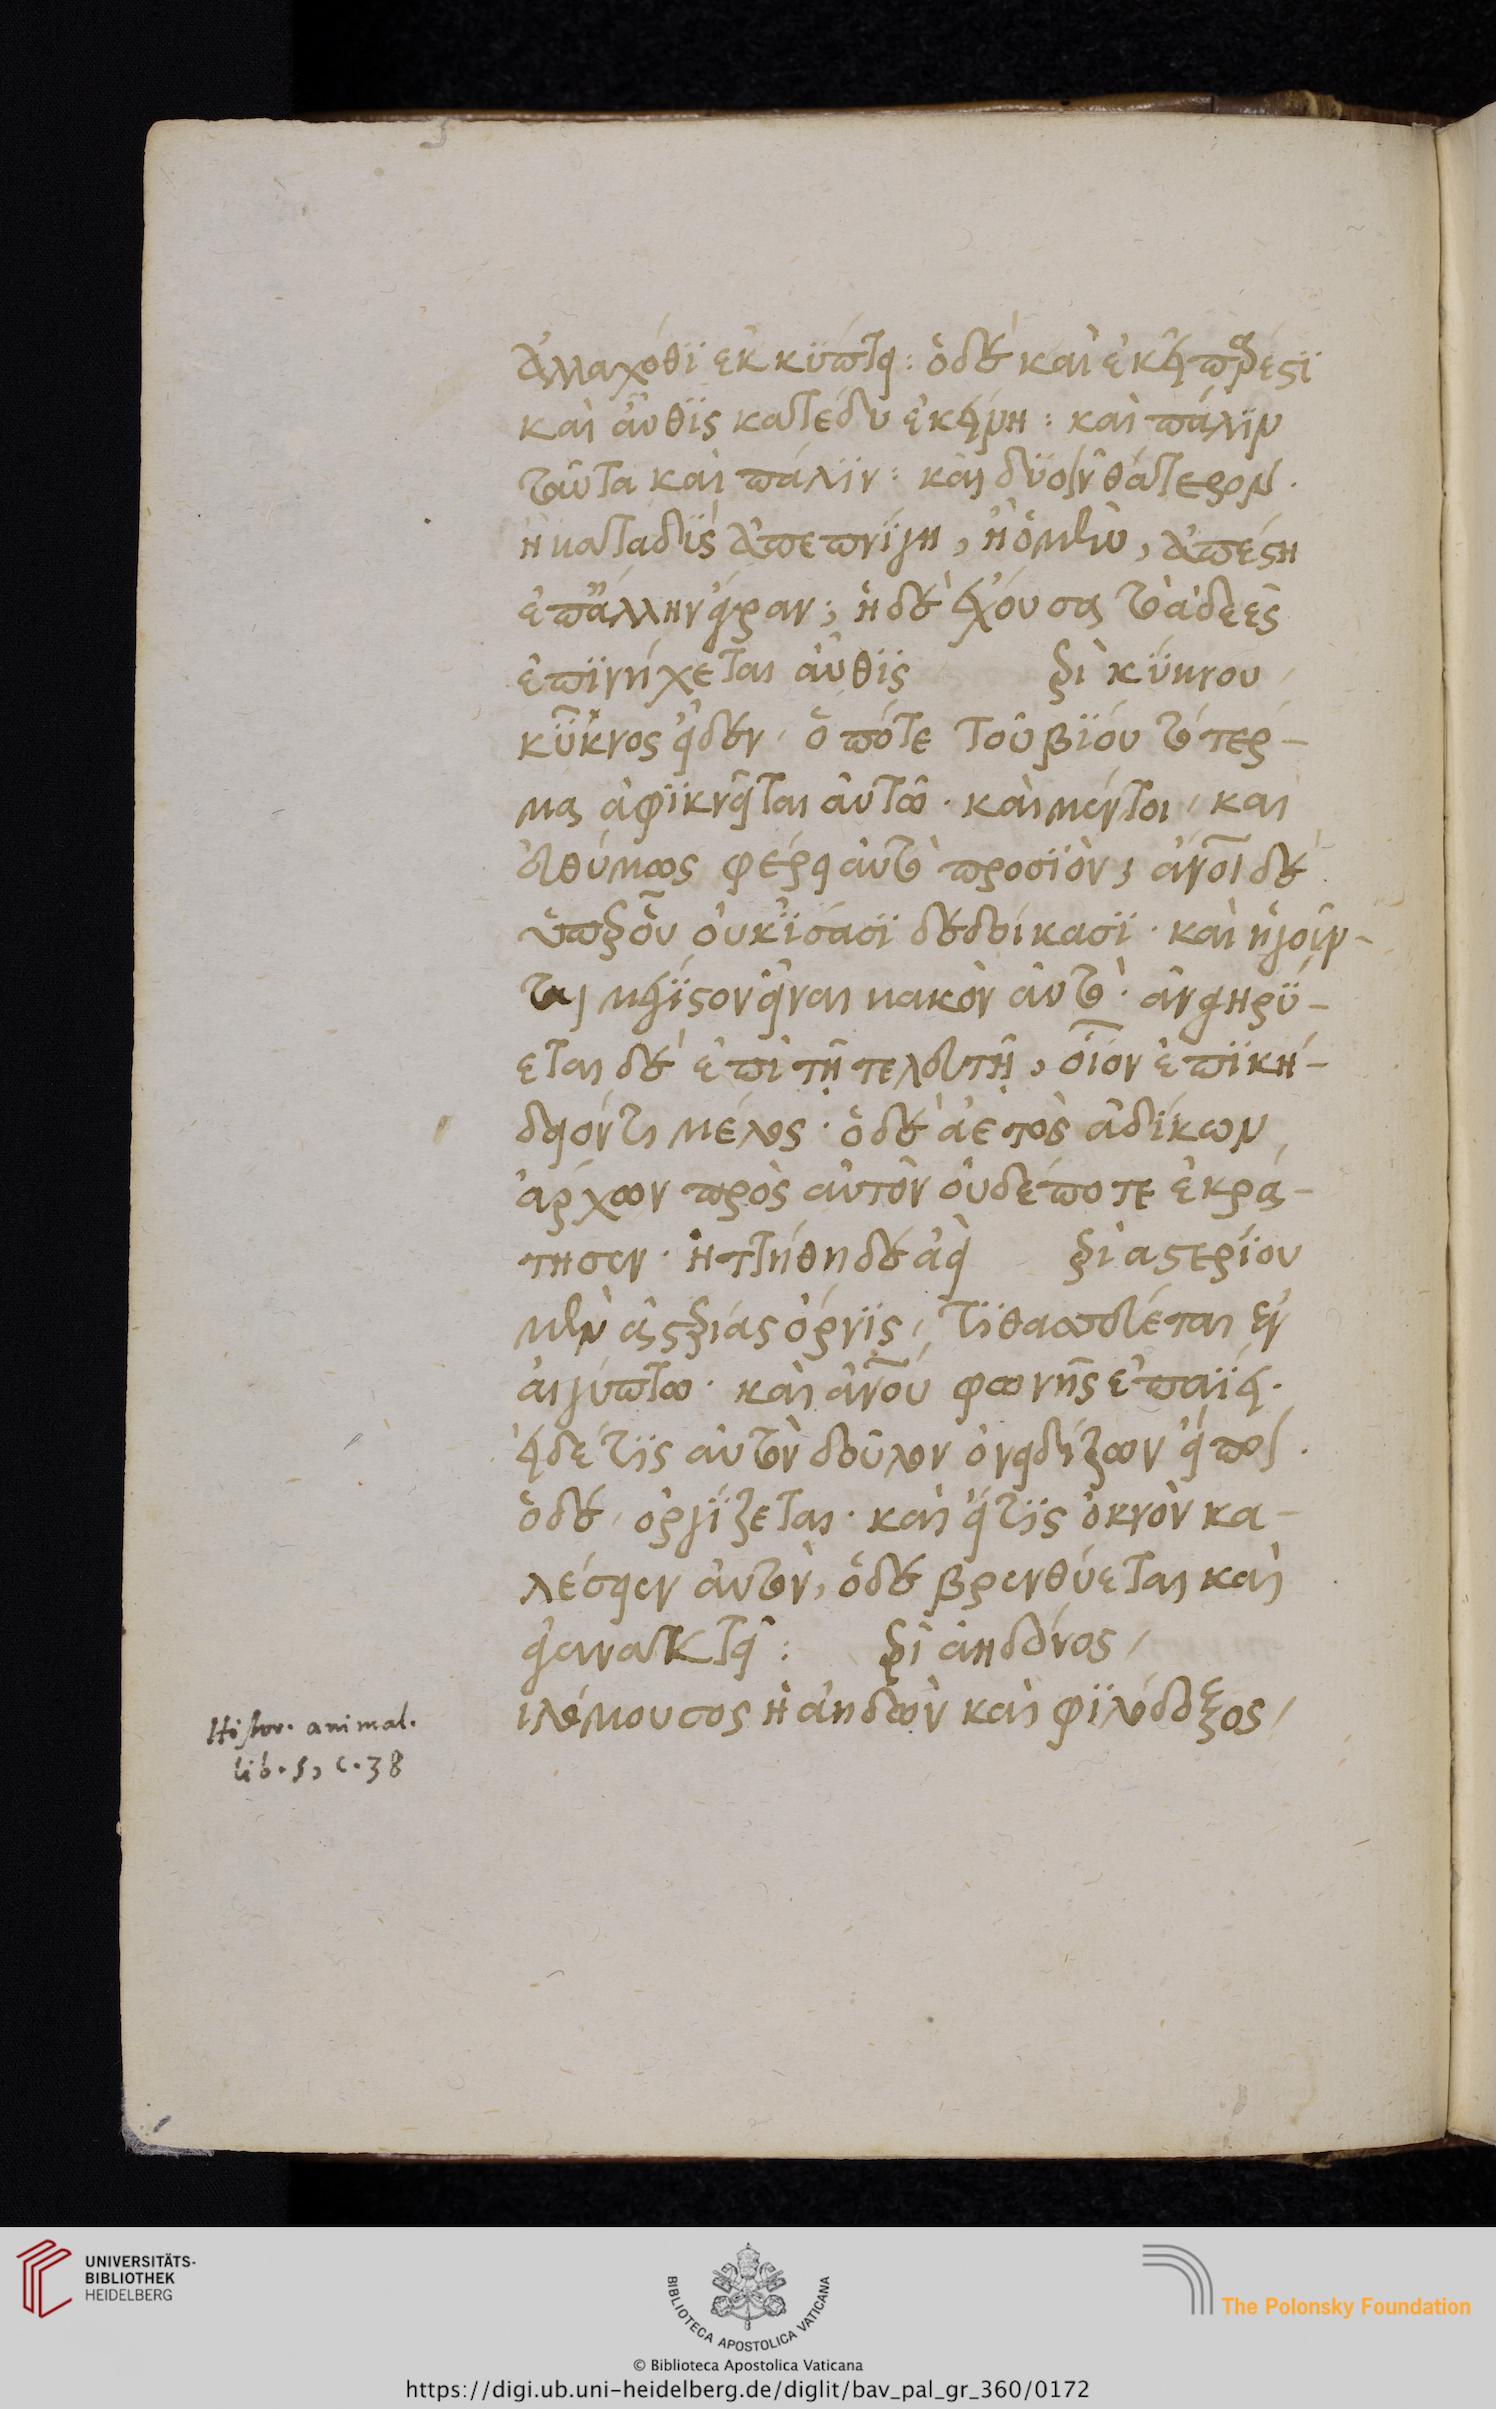 ἀλλαχόθϊ ἐκκύπτει: ὁ δὲ καὶ ἐκεῖ πάρεστϊ
καὶ αὖθϊς κατέδυ ἐκείνη: καὶ πάλϊν
ταῦτα καὶ πάλϊν: καὶ δϋοῖν θάτερον.
ἢ καταδὺς ἀπεπνίγη, ἢ ὁ μὲν, ἀπέστη
ἐπ' ἄλλην ἄγραν; ἡ δὲ ἔχουσα τὸ ἀδεὲς
ἐπϊνήχεται αὖθϊς περὶ κύκνου,
κύκνος εἶδεν, ὁπότε τοῦ βίου τὸ τέρ-
μα ἀφϊκνεῖται αὐτῶ. καὶ μέντοι, καὶ
εὐθύμως φέρει αὐτὸ προσϊὸν; ἄνοι δὲ
ὑπὲρ οὗ οὐκ ἴσασϊ δεδοίκασϊ. καὶ ἡγοῦν-
ται μέγϊστον εἶναι κακὸν αὐτό. ἀνγηρύ-
εται δὲ ἐπὶ τῇ τελευτῇ, οἷον ἐπϊκή-
δειόν τι μέλος. ὁ δὲ ἀετὸς ἀδίκων
ἄρχων πρὸς αὐτὸν οὐδέποτε ἐκρά-
τησεν. ἡττήθη δὲ ἀεὶ περὶ ἀστερίου
μὲν ἀστερίας ὄρνϊς, τϊθασεύεται ἐν
αἰγύπτω. καὶ ἀνοῦ φωνῆς ἐπαΐει.
εἰ δέ τϊς αὐτὸν δοῦλον ὀνειδίζων εἴποι.
ὁ δὲ, ὀργίζεται. καὶ εἴ τϊς ὀκνὸν κα-
λέσειεν αὐτὸν, ὁ δὲ βρενθύεται καὶ
ἀγανακτεῖ: περὶ ἀηδόνος,
ιλόμουσος ἡ ἀηδὼν καὶ φϊλόδοξος,
Histor. animal.
lib. 5, c. 38
UNIVERSITÄTS-
BIBLIOTHEK
HEIDELBERG
BIBLIOTECA APOSTOLICA VATICANA
The Polonsky Foundation
© Biblioteca Apostolica Vaticana
https://digi.ub.uni-heidelberg.de/diglit/bav_pal_gr_360/0172